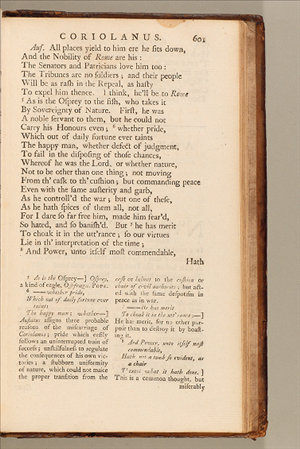 CORIOLANUS. 601
Auf. All places yield to him ere he sits down,
And the Nobility of Rome are his:
The Senators and Patricians love him too:
The Tribunes are no soldiers; and their people
Will be as rash in the Repeal, as hasty
To expel him thence. I think, he'll be to Rome
As is the Osprey to the fish, who takes it
By Sovereignty of Nature. First, he was
A noble servant to them, but he could not
Carry his Honours even; whether pride,
Which out of daily fortune ever taints
The happy man, whether defect of judgment,
To fail in the disposing of those chances,
Whereof he was the Lord, or whether nature,
Not to be other than one thing; not moving
From th' cask to th' cushion; but commanding peace
Even with the same austerity and garb,
As he controll'd the war; but one of these,
As he hath spices of them all, not all,
For I dare so far free him, made him fear'd,
So hated, and so banish'd. But he has merit
To choak it in the utt'rance; so our virtues
Lie in th' interpretation of the time;
And Power, unto itself most commendable,
Hath
As is the Osprey—] Osprey,
a kind of eagle, Ossifraga. POPE.
—whether pride,
Which out of daily fortune ever
taints
The happy man; whether—]
Aufidius assigns three probable
reasons of the miscarriage of
Coriolanus; pride which easily
follows an uninterrupted train of
success; unskilfulness to regulate
the consequences of his own vic-
tories; a stubborn uniformity
of nature, which could not make
the proper transition from the
or helmet to the cushion or
chair of civil authority; but act-
ed with the same despotism in
peace as in war.
—he has merit
To choak it in the utt'rance:—]
He has merit, for no other pur-
pose than to destroy it by boast-
ing it.
And Power, unto itself most
commendable,
Hath not a tomb so evident, as
a chair
T' extol what it hath done.]
This is a common thought, but
miserably